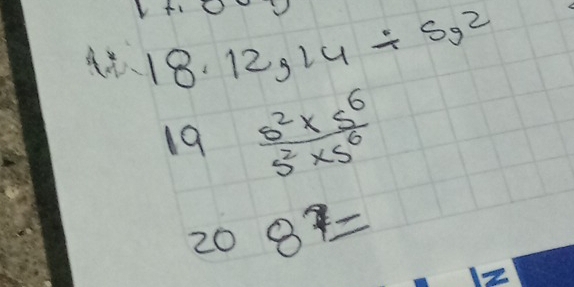 18. 12,14 ÷ 5,2
19 5² × 5⁶
5² × 5⁶
20 8⁷ =
N